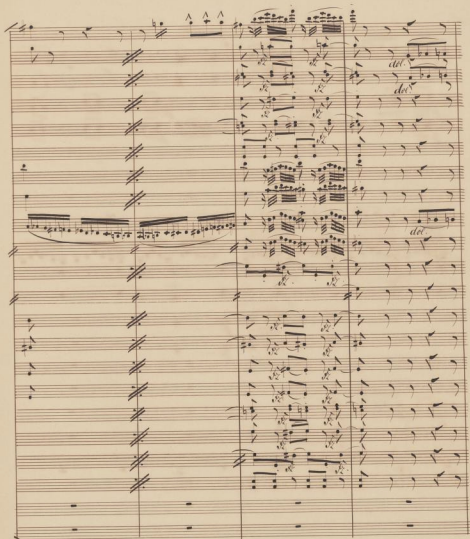 dol.
dol.
dol.